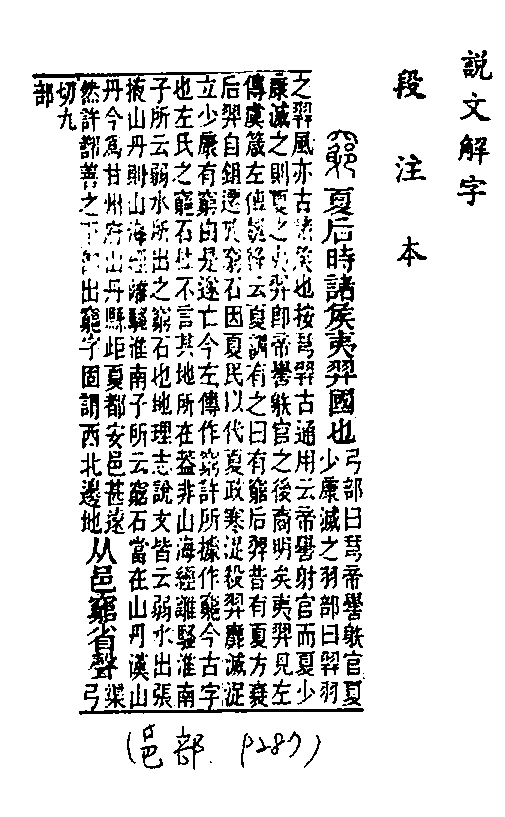 說文解字
段注本
夏后時諸侯夷羿國也
弓部曰𢎗帝嚳䠶官夏
少康滅之羽部曰羿羽
之羿風亦古諸侯也按𢎗羿古通用云帝嚳射官而夏少
康滅之則夏之夷羿卽帝嚳䠶官之後裔明矣夷羿見左
傳虞箴左傳魏絳云夏訓有之曰有窮后羿昔有夏方衰
后羿自鉏遷於窮石因夏民以代夏政寒浞殺羿靡滅浞
立少康有窮由是遂亡今左傳作窮許所據作竆今古字
也左氏之窮石杜不言其地所在葢非山海經離騷淮南
子所云弱水所出之窮石也地理志說文皆云弱水出張
掖山丹則山海經離騷淮南子所云窮石當在山丹漢山
丹今爲甘州府山丹縣距夏都安邑甚遠
然許鄯善之下卽出竆字固謂西北邊地
从邑竆省聲
渠
弓
切九
部
(邑部. P287)